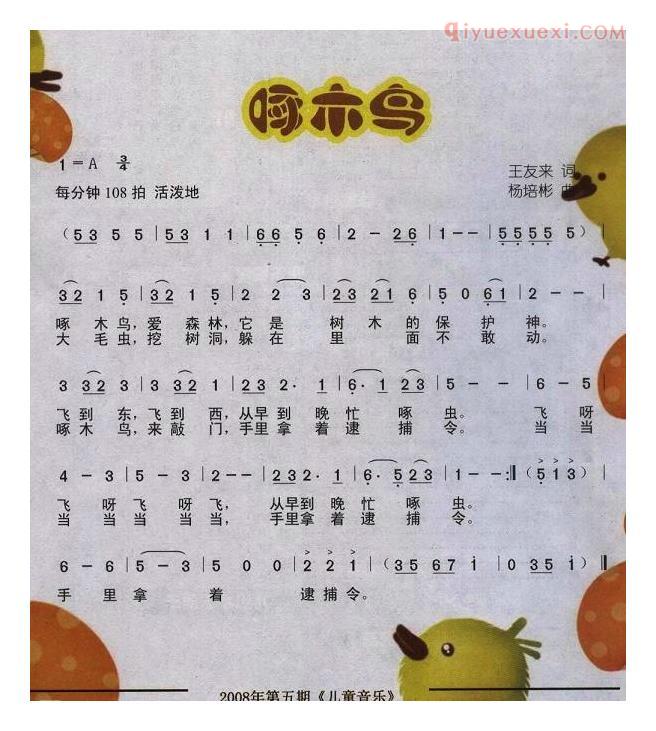 qiyuexuexi.com
啄木鸟
1=A 3/4
王友来 词
每分钟 108 拍 活泼地
杨培彬
(5 3 5 5 | 5 3 1 1 | 6 6 5 6 | 2 - 2 6 | 1 - - | 5 5 5 5 5 ) |
3 2 1 5 | 3 2 1 5 | 2 2 3 | 2 3 2 1 6 | 5 0 6 1 | 2 - - |
啄 木 鸟，爱 森 林，它 是 树 木 的 保 护 神。
大 毛 虫，挖 树 洞，躲 在 里 面 不 敢 动。
3 3 2 3 | 3 3 2 1 | 2 3 2· 1 | 6· 1 2 3 | 5 - - | 6 - 5 |
飞 到 东，飞 到 西，从 早 到 晚 忙 啄 虫。 飞 呀
啄 木 鸟，来 敲 门，手 里 拿 着 逮 捕 令。 当 当
4 - 3 | 5 - 3 | 2 - - | 2 3 2· 1 | 6· 5 2 3 | 1 - - :‖ ( 5 1 3 ) |
飞 呀 飞 呀 飞， 从 早 到 晚 忙 啄 虫。
当 当 当 当 当， 手 里 拿 着 逮 捕 令。
6 - 6 | 5 - 3 | 5 0 0 | 2 2 1 | ( 3 5 6 7 i | 0 3 5 i ) ‖
手 里 拿 着 逮 捕 令。
2008年第五期《儿童音乐》